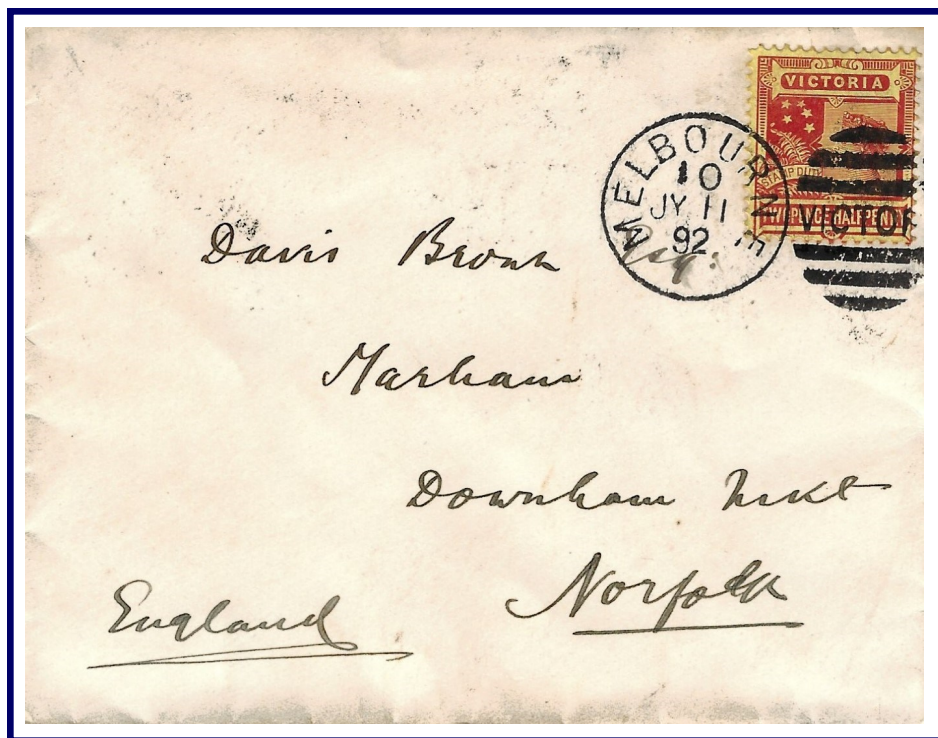 VICTORIA
STAMP DUTY
TWO PENCE HALFPENNY
MELBOURNE
10
JY 11
92
VICTOR
Davis Brown Esq.
Marham
Downham Mkt
Norfolk
England